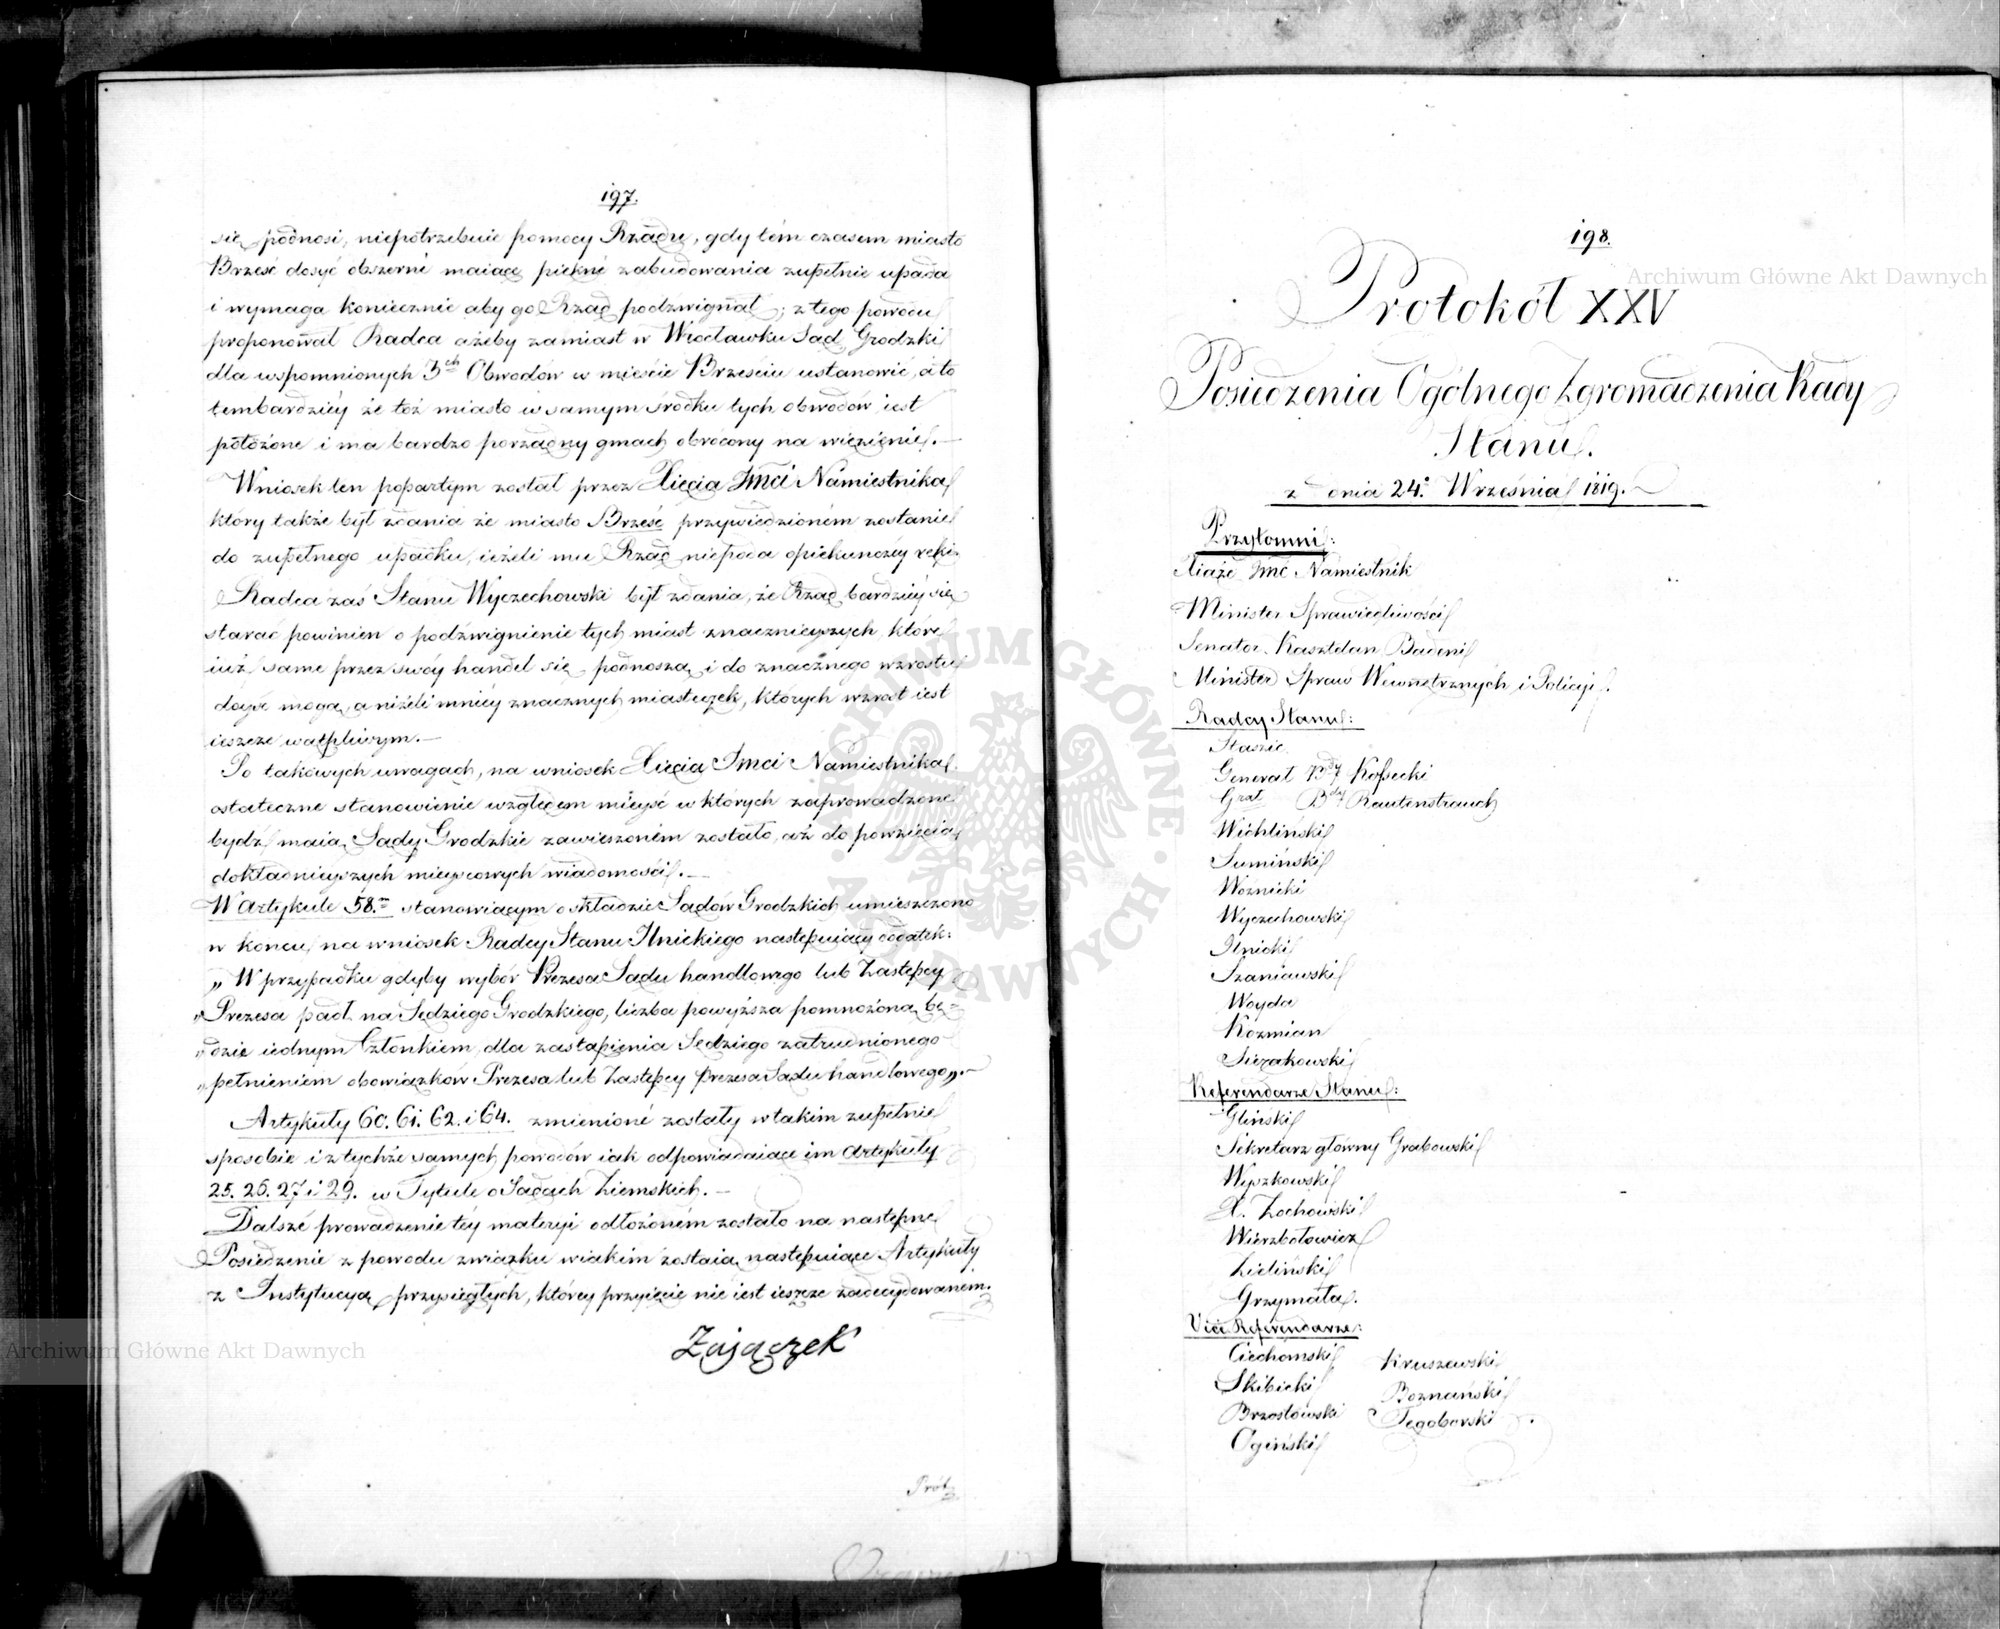 197.
się podnosi, niepotrzebuie pomocy Rządu, gdy tém czasem miasto
Brześć dosyć obszerné maiące piękné zabudowania zupełnie upada
i wymaga koniecznie aby go Rząd podzwignął; z tego powodu
proponował Radca ażeby zamiast w Wrocławku Sąd Grodzki
dla wspomnionych 3ch Obwodów w mieście Brześciu ustanowić, a to
tembardziéy że toż miasto w samym środku tych obwodów iest
położone i ma bardzo porządny gmach obrócony na więzienie.—
Wniosek ten popartym został przez Xięcia Jmci Namiestnika
który także był zdania że miasto Brześć przywiedzioném zostanie
do zupełnego upadku, ieżeli mu Rząd niepoda opiekunczéy ręki.
Radca zaś Stanu Wyczechowski był zdania, że Rząd bardziéy się
starać powinien o podźwignienie tych miast znacznieyszych, które
iuż same przez swóy handel się podnoszą, i do znacznego wzrostu
doyść mogą, aniżeli mniéy znacznych miasteczek, których wzrost iest
ieszcze wątpliwym.—
Po takowych uwagach, na wniosek Xięcia Jmci Namiestnika
ostateczne stanowienie względem mieysc w których zaprowadzone
bydź maią Sądy Grodzkie zawieszoném zostało, aż do powzięcia
dokładnieyszych mieyscowych wiadomości.—
W Artykule 58.m stanowiącym o składzie Sądów Grodzkich umieszczono
w końcu na wniosek Radcy Stanu Ilnickiego następuiący dodatek:
„W przypadku gdyby wybór Prezesa Sądu handlowego lub Zastępcy
„Prezesa padł na Sędziego Grodzkiego, liczba powyższa pomnożoną bę=
„dzie iednym Członkiem, dla zastąpienia Sędziego zatrudnionego
„pełnieniem obowiązków Prezesa lub Zastępcy Prezesa Sądu handlowego„.—
Artykuły 60. 61. 62. i 64. zmienioné zostały w takim zupełnie
sposobie i z tychże samych powodów iak odpowiadaiące im Artykuły
25. 26. 27 i 29. w Tytule o Sądach Ziemskich.—
Dalszé prowadzenie téy materyi odłożoném zostało na następne
Posiedzenie z powodu związku w iakim zostaią następuiące Artykuły
z Instytucyą przysięgłych, któréy przyięcie nié iest ieszcze zadecydowaném.
Zajączek
Prót.
198.
Protokół XXV
Posiedzenia Ogólnego Zgromadzenia Rady
Stanu.
z dnia 24.° Września 1819.
Przytomni:
Xiąże Jmć Namiestnik
Minister Sprawiedliwości
Senator Kasztelan Badeni
Minister Spraw Wewnętrznych i Policyi.
Radcy Stanu:
Staszic
Generał Bdy Kossecki
Grał Bdy Rautenstrauch
Wichliński
Sumiński
Woźnicki
Wyczechowski
Ilnicki
Szaniawski
Woyda
Kożmian
Sierakowski
Referendarze Stanu:
Gliński
Sekretarz główny Grabowski
Wyszkowski
X. Zochowski
Wierzbołowicz
Zieliński
Grzymała.
Vice Referendarze:
Ciechomski Kruszewski
Skibicki Boznański
Brzostowski Tęgoborski
Ogiński
Archiwum Główne Akt Dawnych
Archiwum Główne Akt Dawnych
ARCHIWUM GŁÓWNE AKT DAWNYCH